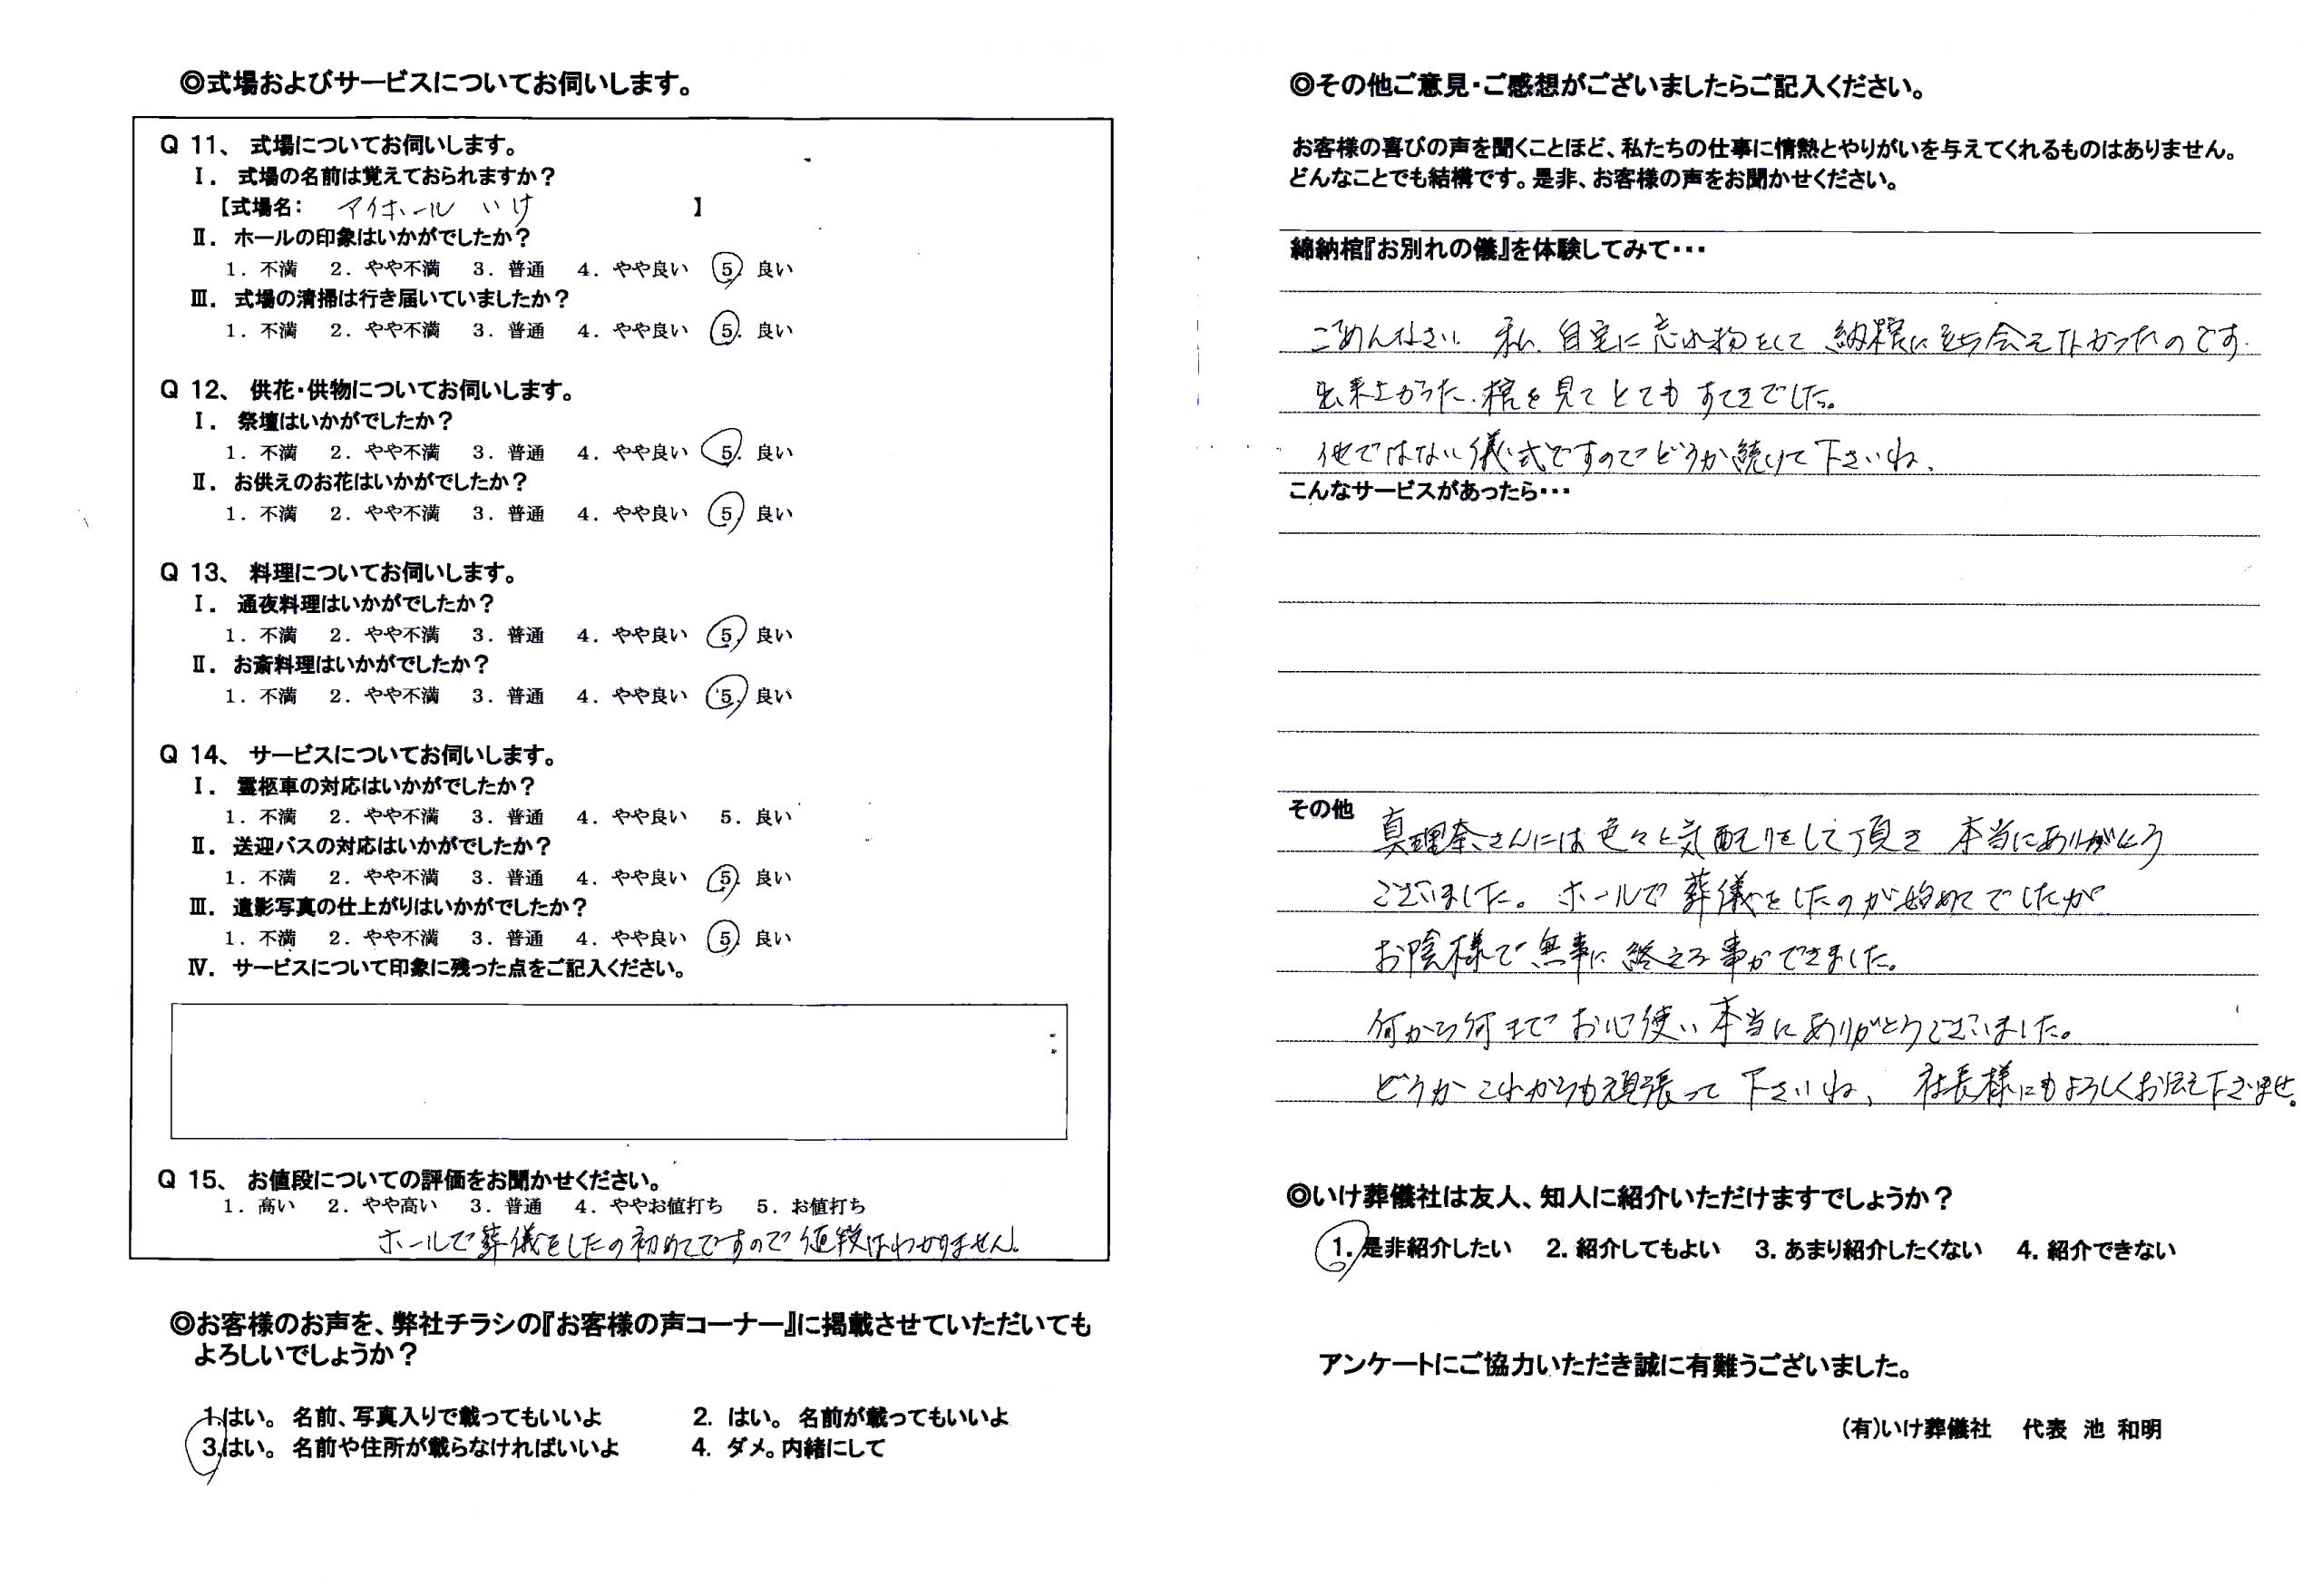 ◎式場およびサービスについてお伺いします。
Q 11、 式場についてお伺いします。
Ⅰ. 式場の名前は覚えておられますか？
【式場名： アイホール いけ 】
Ⅱ. ホールの印象はいかがでしたか？
1. 不満 2. やや不満 3. 普通 4. やや良い 5. 良い
Ⅲ. 式場の清掃は行き届いていましたか？
1. 不満 2. やや不満 3. 普通 4. やや良い 5. 良い
Q 12、 供花・供物についてお伺いします。
Ⅰ. 祭壇はいかがでしたか？
1. 不満 2. やや不満 3. 普通 4. やや良い 5. 良い
Ⅱ. お供えのお花はいかがでしたか？
1. 不満 2. やや不満 3. 普通 4. やや良い 5. 良い
Q 13、 料理についてお伺いします。
Ⅰ. 通夜料理はいかがでしたか？
1. 不満 2. やや不満 3. 普通 4. やや良い 5. 良い
Ⅱ. お斎料理はいかがでしたか？
1. 不満 2. やや不満 3. 普通 4. やや良い 5. 良い
Q 14、 サービスについてお伺いします。
Ⅰ. 霊柩車の対応はいかがでしたか？
1. 不満 2. やや不満 3. 普通 4. やや良い 5. 良い
Ⅱ. 送迎バスの対応はいかがでしたか？
1. 不満 2. やや不満 3. 普通 4. やや良い 5. 良い
Ⅲ. 遺影写真の仕上がりはいかがでしたか？
1. 不満 2. やや不満 3. 普通 4. やや良い 5. 良い
Ⅳ. サービスについて印象に残った点をご記入ください。
Q 15、 お値段についての評価をお聞かせください。
1. 高い 2. やや高い 3. 普通 4. ややお値打ち 5. お値打ち
ホールで葬儀をしたの初めてですので値段はわかりません。
◎お客様のお声を、弊社チラシの『お客様の声コーナー』に掲載させていただいても
よろしいでしょうか？
1.はい。 名前、写真入りで載ってもいいよ 2. はい。 名前が載ってもいいよ
3.はい。 名前や住所が載らなければいいよ 4. ダメ。内緒にして
◎その他ご意見・ご感想がございましたらご記入ください。
お客様の喜びの声を聞くことほど、私たちの仕事に情熱とやりがいを与えてくれるものはありません。
どんなことでも結構です。是非、お客様の声をお聞かせください。
綿納棺『お別れの儀』を体験してみて・・・
ごめんなさい 私、自宅に忘れ物をして 納棺に立ち会えなかったのです.
出来上がった.棺を見てとても すてきでした。
他ではない儀式ですのでどうか続けて下さいね、
こんなサービスがあったら・・・
その他
真理奈さんには色々と気配りをして頂き 本当にありがとう
ございました。ホールで葬儀をしたのが始めてでしたが
お陰様で無事に終える事ができました。
何から何までお心使い本当にありがとうございました。
どうかこれからも頑張って 下さいね、 社長様にもよろしくお伝え下さいませ。
◎いけ葬儀社は友人、知人に紹介いただけますでしょうか？
1. 是非紹介したい 2. 紹介してもよい 3. あまり紹介したくない 4. 紹介できない
アンケートにご協力いただき誠に有難うございました。
(有)いけ葬儀社 代表 池 和明